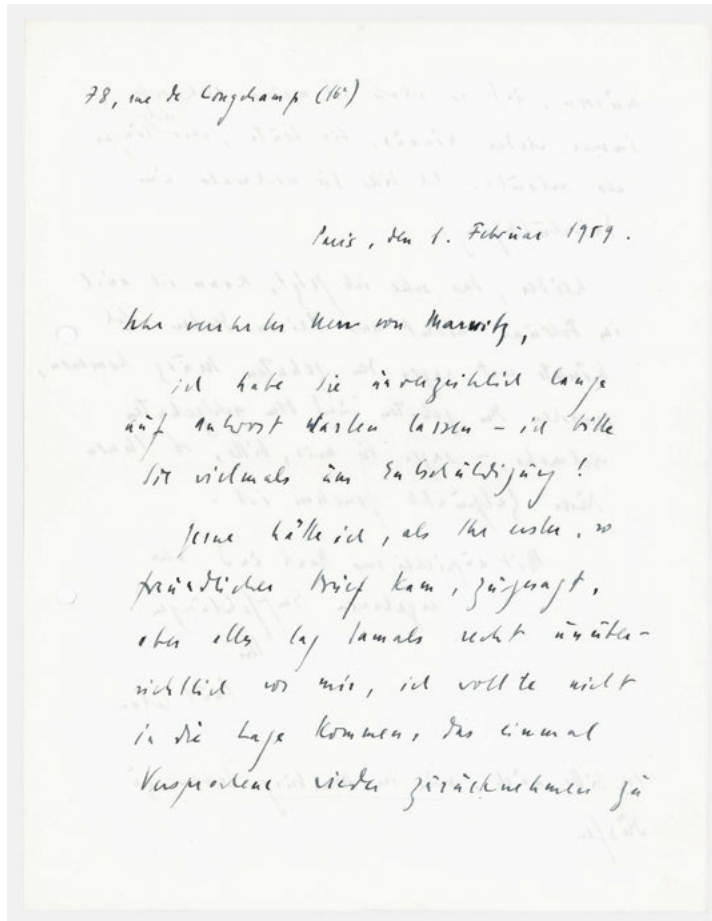 78, rue de Longchamp (16e)
Paris, den 1. Februar 1959.
Sehr verehrter Herr von Marwitz,
ich habe Sie unverzeihlich lange
auf Antwort warten lassen – ich bitte
Sie vielmals um Entschuldigung!
Gerne hätte ich, als Ihr erster, so
freundlicher Brief kam, zugesagt,
aber alles lag damals recht unüber-
sichtlich vor mir, ich wollte nicht
in die Lage kommen, das einmal
Versprochene wieder zurücknehmen zu